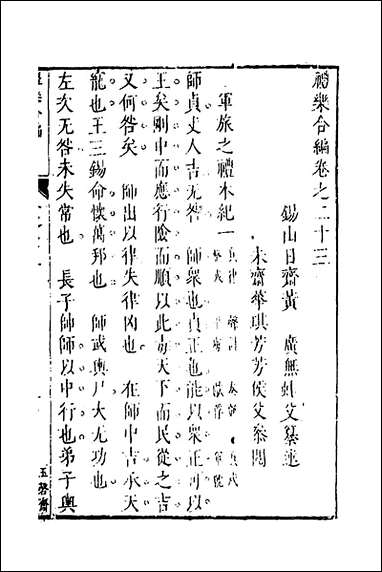 禮樂合編卷之二十三
錫山日齋黃 廣無 父纂述
未齋華琪芳芳侯父叅閱
軍旅之禮本紀一
師貞丈人吉无咎 師衆也貞正也能以衆正可以
王矣剛中而應行險而順以此毒天下而民從之吉
又何咎矣 師出以律失律凶也 在師中吉承天
寵也王三錫命懷萬邦也 師或輿尸大无功也
左次无咎未失常也 長子帥師以中行也弟子輿
玉磬齋